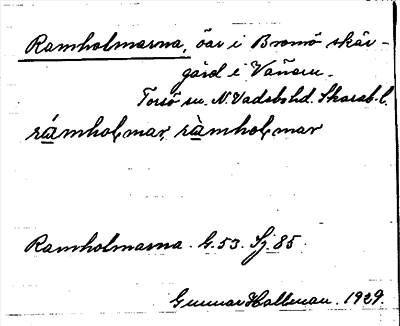 Ramholmarna, öar i Bromö skär-
gård i Vänern.
Torsö sn. N. Vadsbo hd. Skarab. l.
rámhoḷmar, ràmhoḷmar
Ramholmarna. G. 53. Sj. 85.
Gunnar Hallman. 1929.